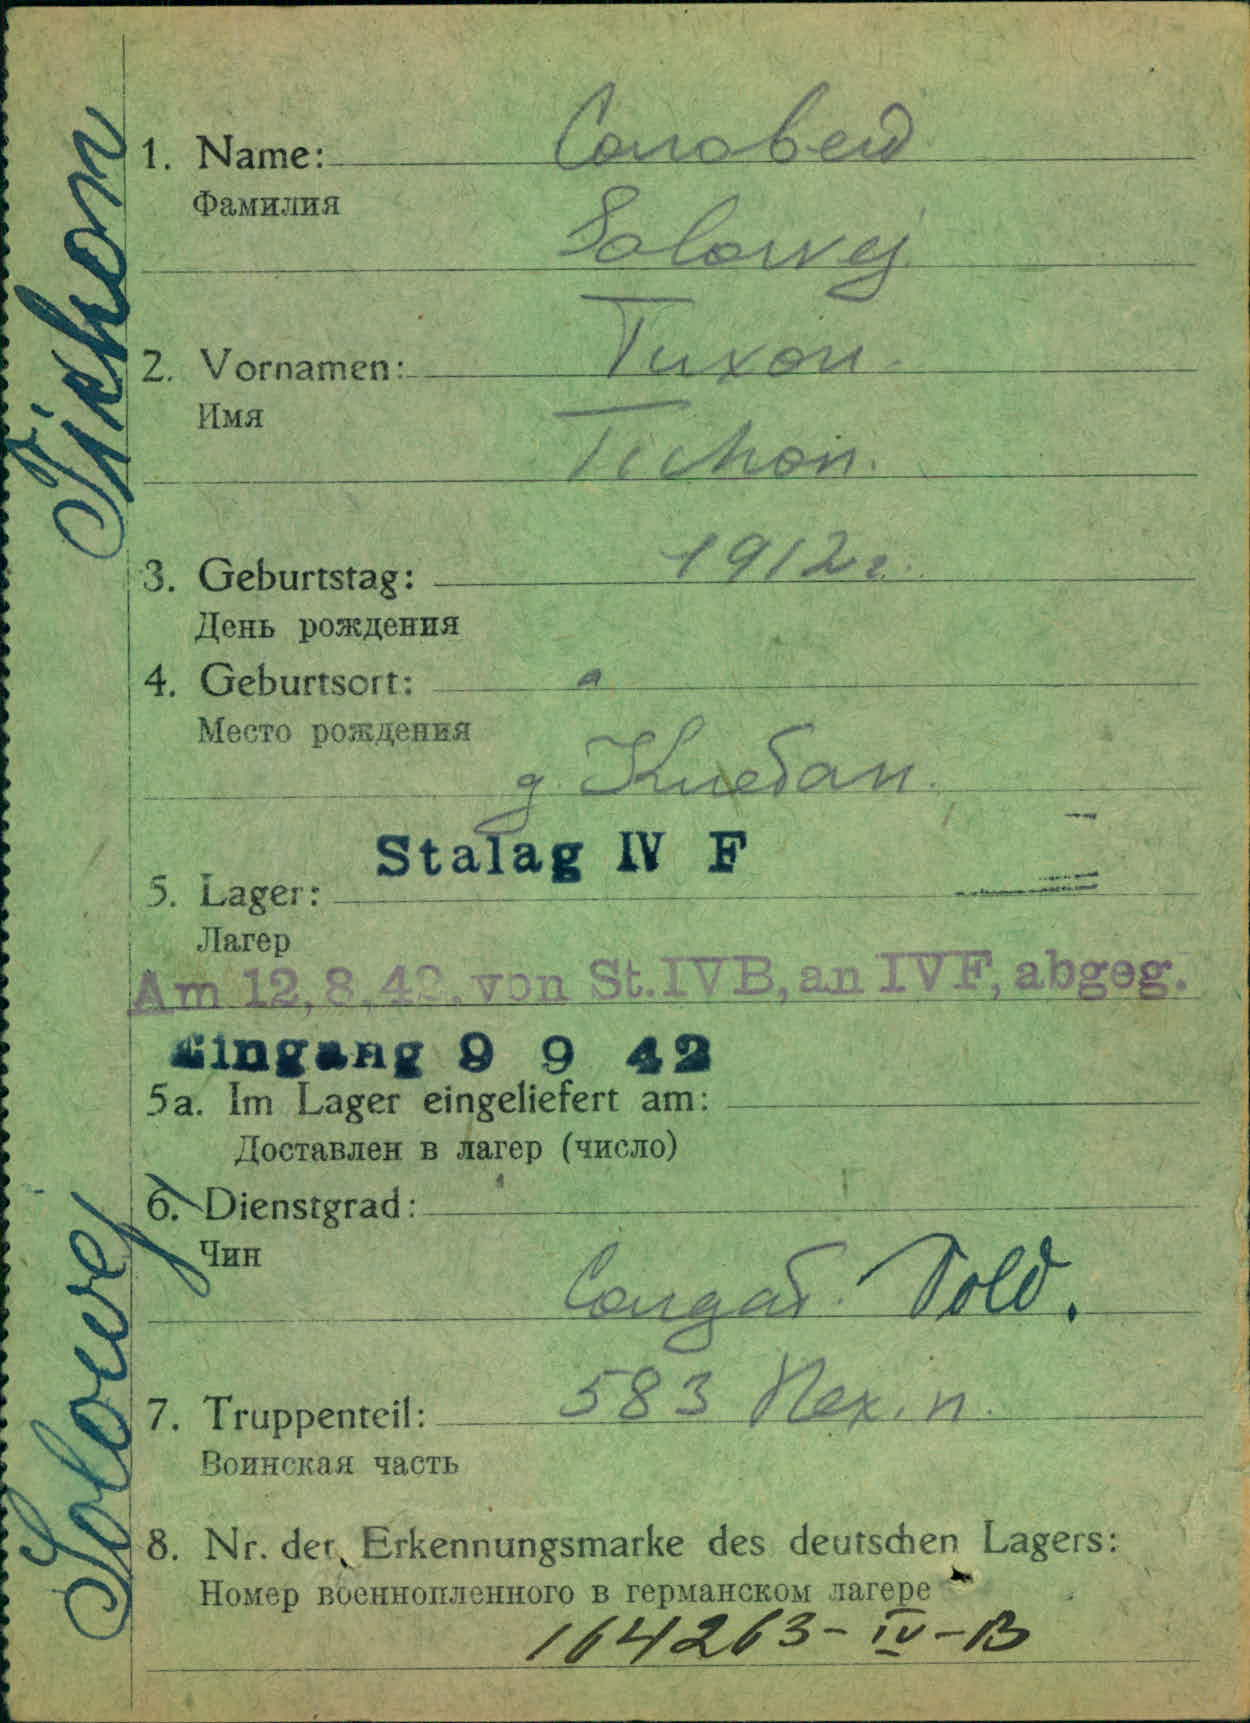 Tikhon
Solowej
1. Name: Соловей
Фамилия
Solowej
2. Vornamen: Тихон.
Имя
Tichon.
3. Geburtstag: 1912 г.
День рождения
4. Geburtsort:
Место рождения
д.
Stalag IV F
5. Lager:
Лагер
Am 12.8.42. von St. IV B, an IV F, abgeg.
Eingang 9 9 42
5a. Im Lager eingeliefert am:
Доставлен в лагер (число)
6. Dienstgrad:
Чин
Солдат. Sold.
7. Truppenteil: 583 п.
Воинская часть
8. Nr. der Erkennungsmarke des deutschen Lagers:
Номер военнопленного в германском лагере
164263-IV-B